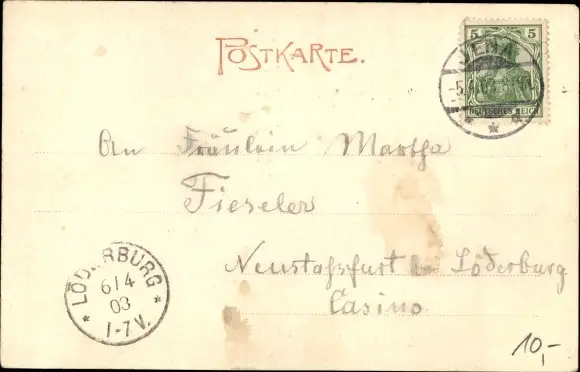 POSTKARTE.
5 5
JENA
-5.4.03
DEUTSCHES REICH
An Fräulein Martha
Fieseler
Neustaßfurt bei Löderburg
Casino
* LÖDERBURG *
6/4
03
1-7V.
10,-